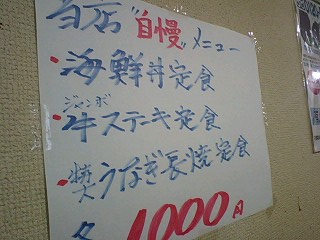 当店"自慢"メニュー
・海鮮丼定食
ジャンボ
・牛ステーキ定食
・特大うなぎ長焼定食
各 1000円